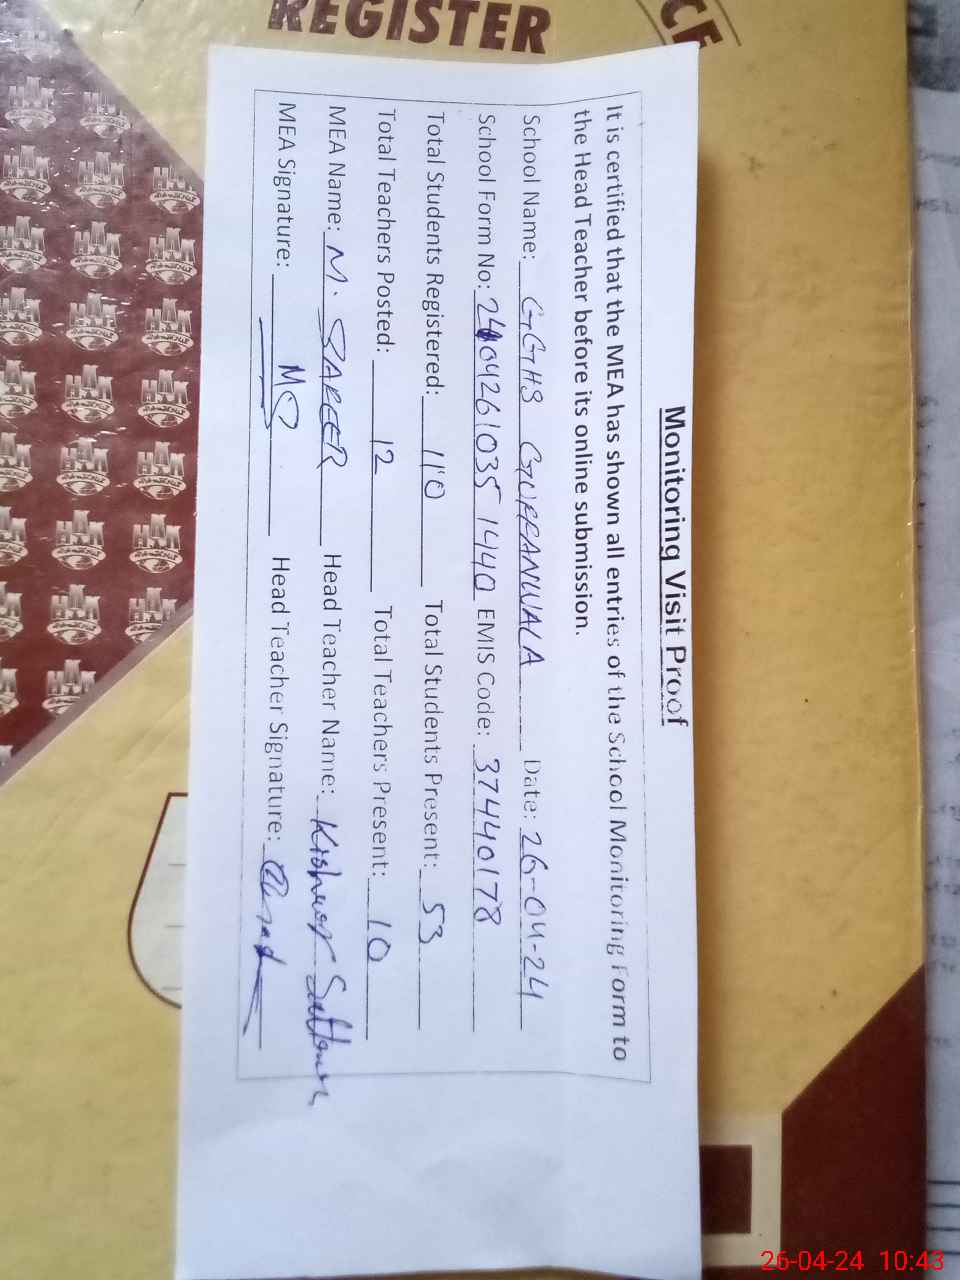 REGISTER
CE
Monitoring Visit Proof
It is certified that the MEA has shown all entries of the School Monitoring Form to
the Head Teacher before its online submission.
School Name: GGHS GURRANWALA Date: 26-04-24
School Form No: 2404261035 1440 EMIS Code: 37440178
Total Students Registered: 110 Total Students Present: 53
Total Teachers Posted: 12 Total Teachers Present: 10
MEA Name: M. SAFEER Head Teacher Name: Kishwar Sultana
MEA Signature: MS Head Teacher Signature:
26-04-24 10:43